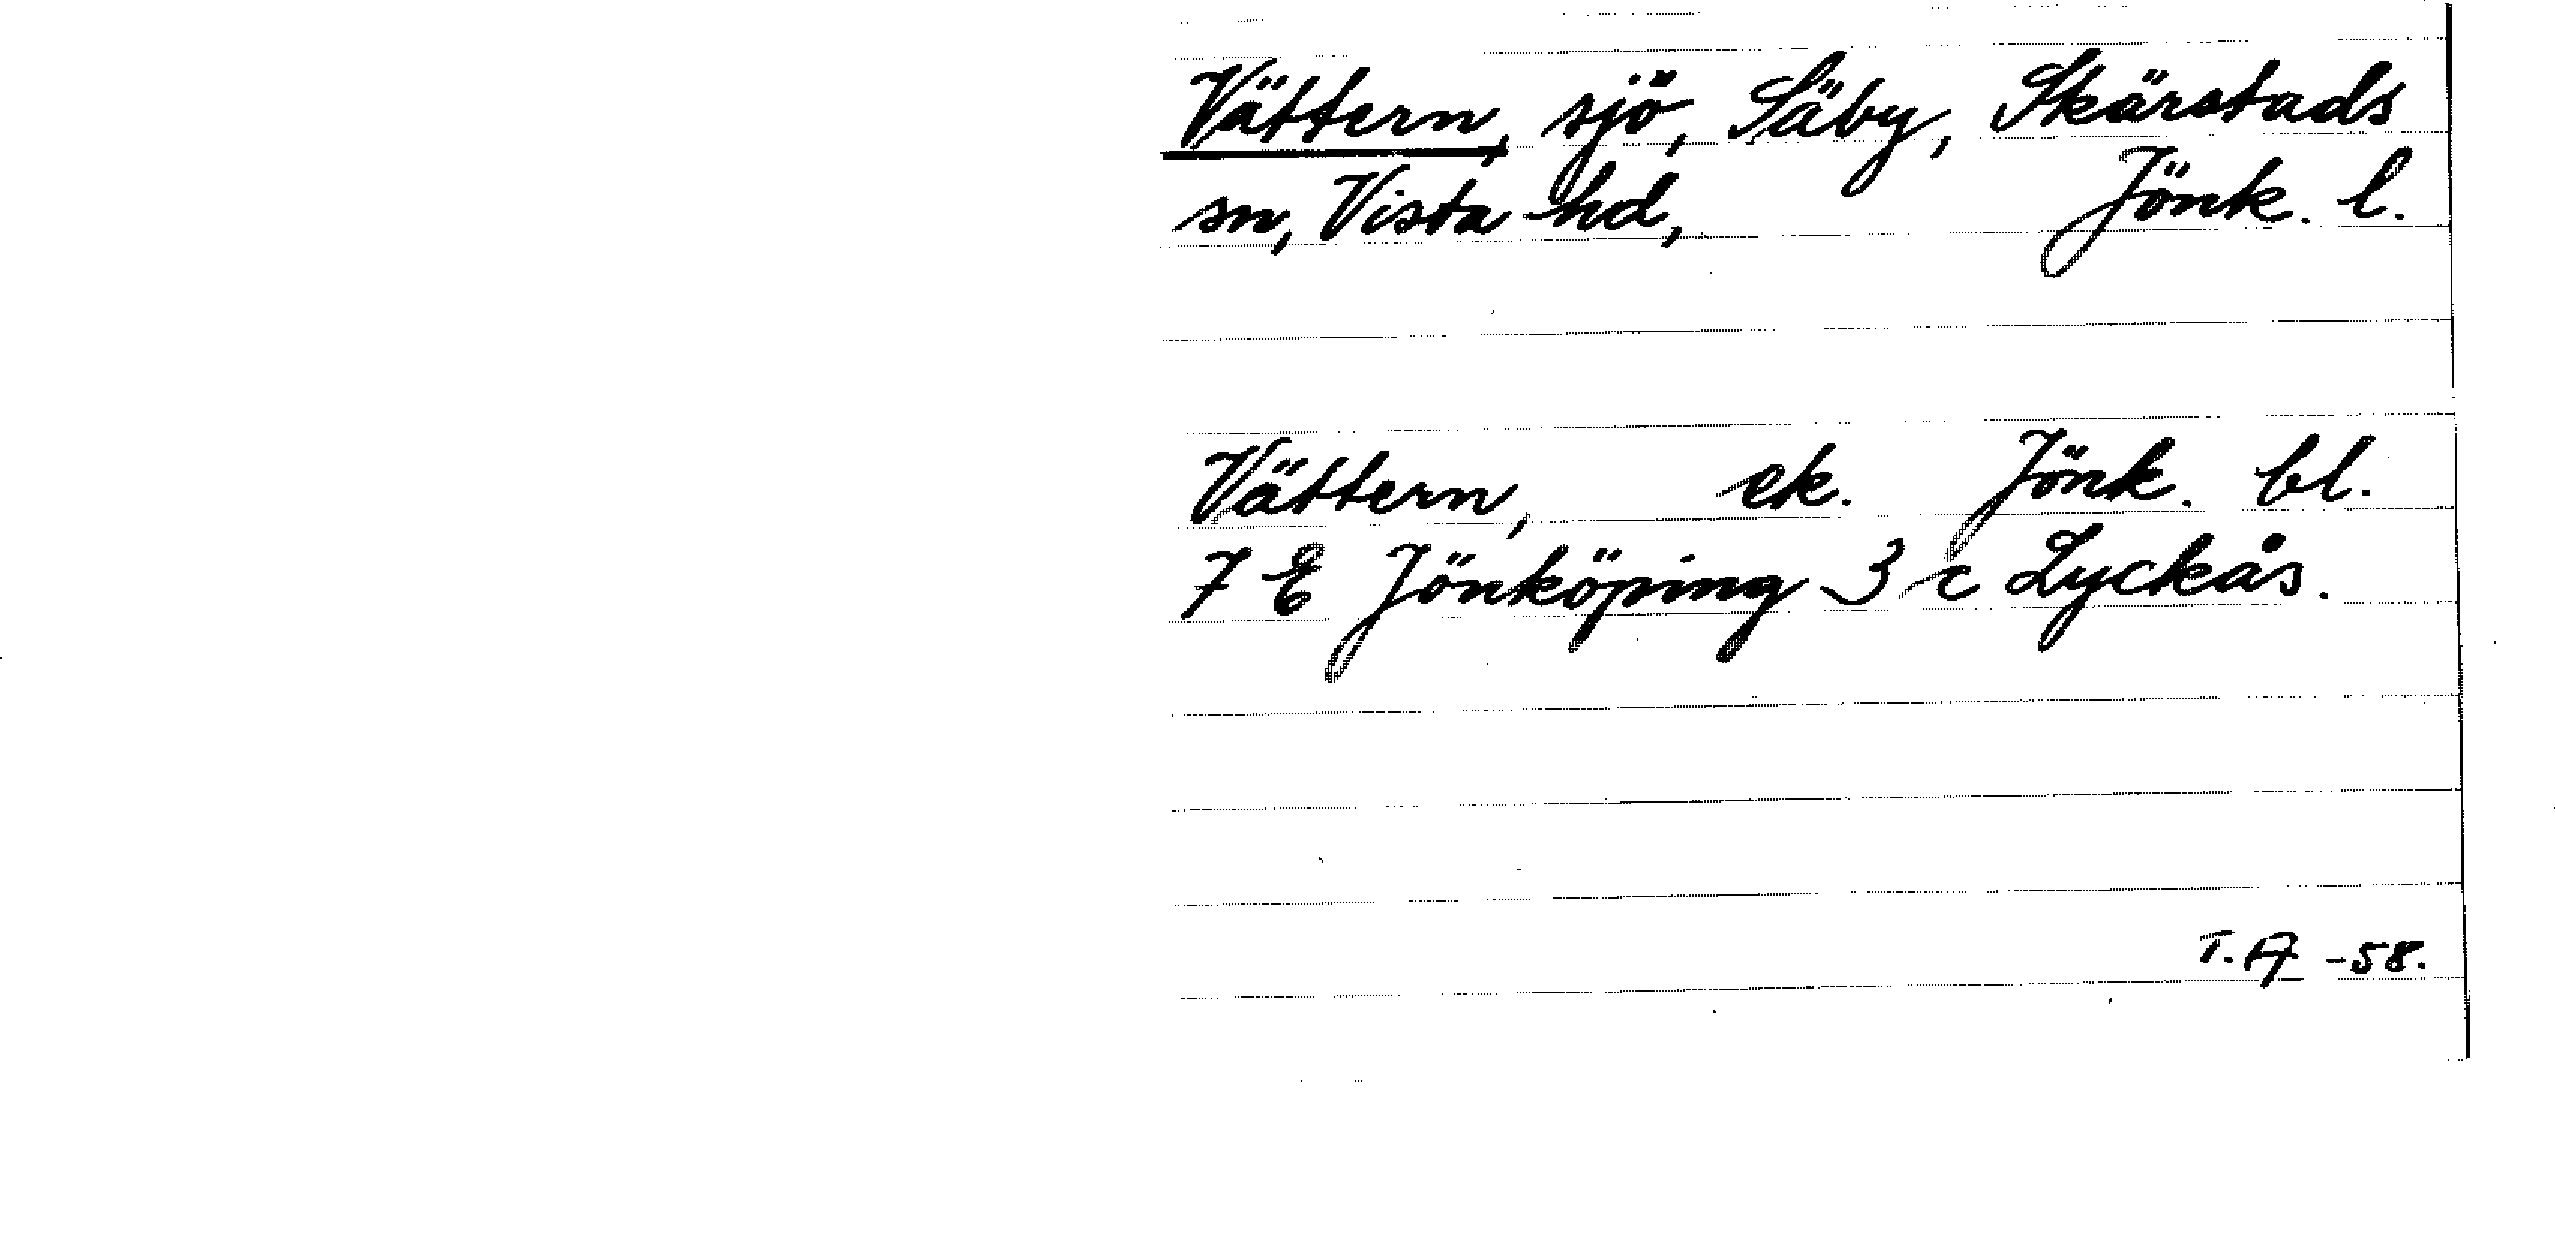 Vättern, sjö, Säby, Skärstads
sn, Vista hd, Jönk. l.
Vättern, ek. Jönk. bl.
7 E Jönköping 3 c Lyckås.
T. A -58.